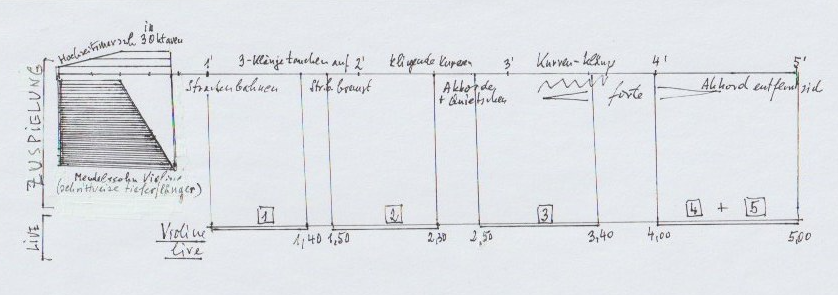 in
Hochzeitsmarsch 3 Oktaven
1' 3-Klänge tauchen auf 2' klingende Kurven 3' Kurven-Klang 4' 5'
Strassenbahnen Strb. bremst Akkorde forte Akkord entfernt sich
+ Quietschen
ZUSPIELUNG
Mendelssohn Violine
(schrittweise tiefer, länger)
1 2 3 4 + 5
LIVE
Violine
live
1,40 1,50 2,30 2,50 3,40 4,00 5,00